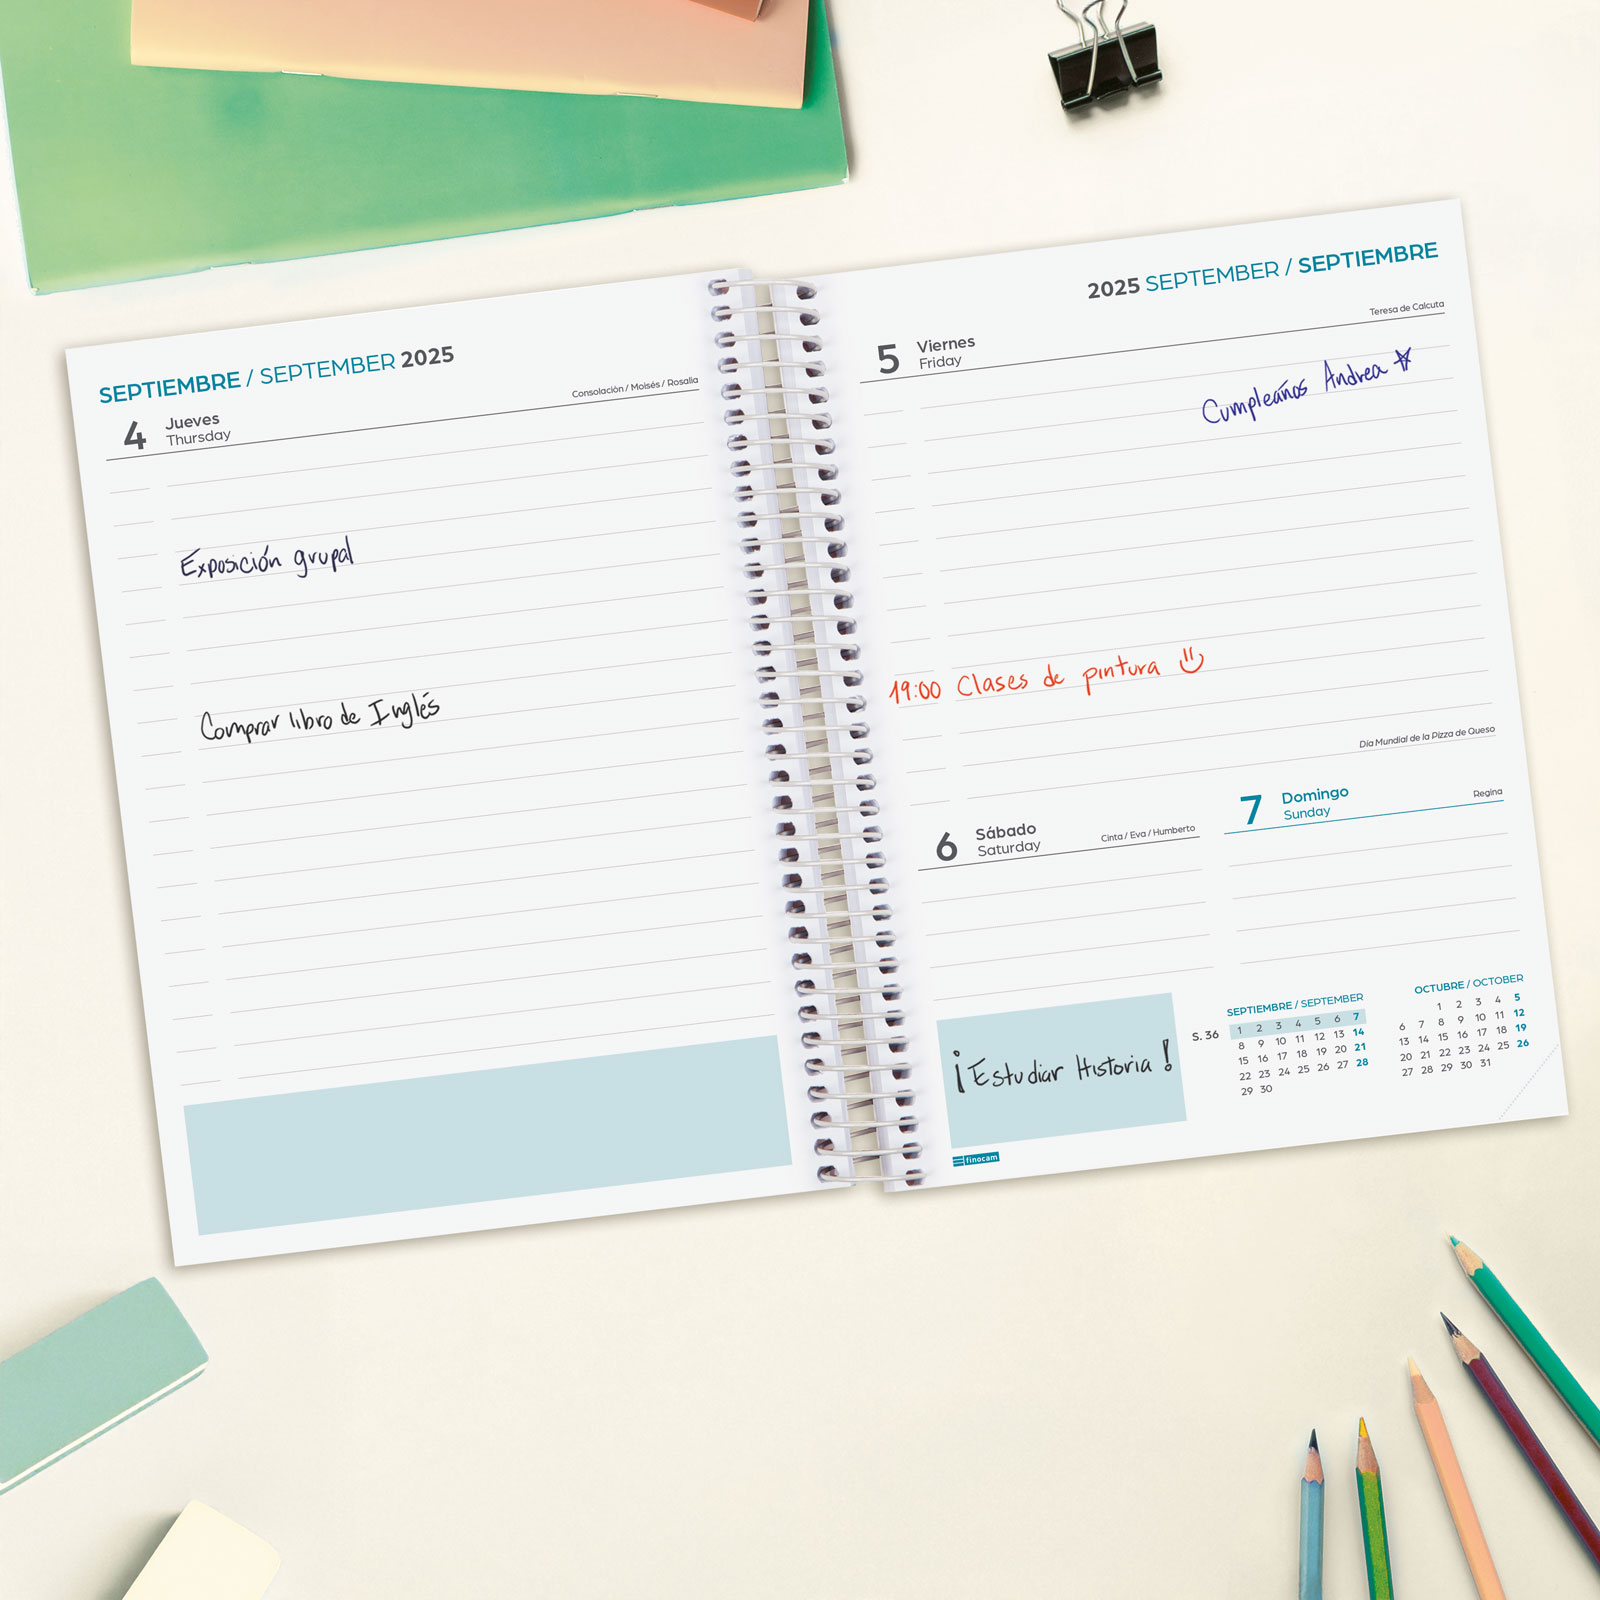 SEPTIEMBRE / SEPTEMBER 2025
4 Jueves
Thursday
Consolación / Moisés / Rosalía
Exposición grupal
Comprar libro de Inglés
2025 SEPTEMBER / SEPTIEMBRE
5 Viernes
Friday
Teresa de Calcuta
Cumpleaños Andrea
19:00 Clases de pintura
Día Mundial de la Pizza de Queso
6 Sábado
Saturday
Cinta / Eva / Humberto
7 Domingo
Sunday
Regina
¡Estudiar Historia!
finocam
S. 36
SEPTIEMBRE / SEPTEMBER
1 2 3 4 5 6 7
8 9 10 11 12 13 14
15 16 17 18 19 20 21
22 23 24 25 26 27 28
29 30
OCTUBRE / OCTOBER
1 2 3 4 5
6 7 8 9 10 11 12
13 14 15 16 17 18 19
20 21 22 23 24 25 26
27 28 29 30 31